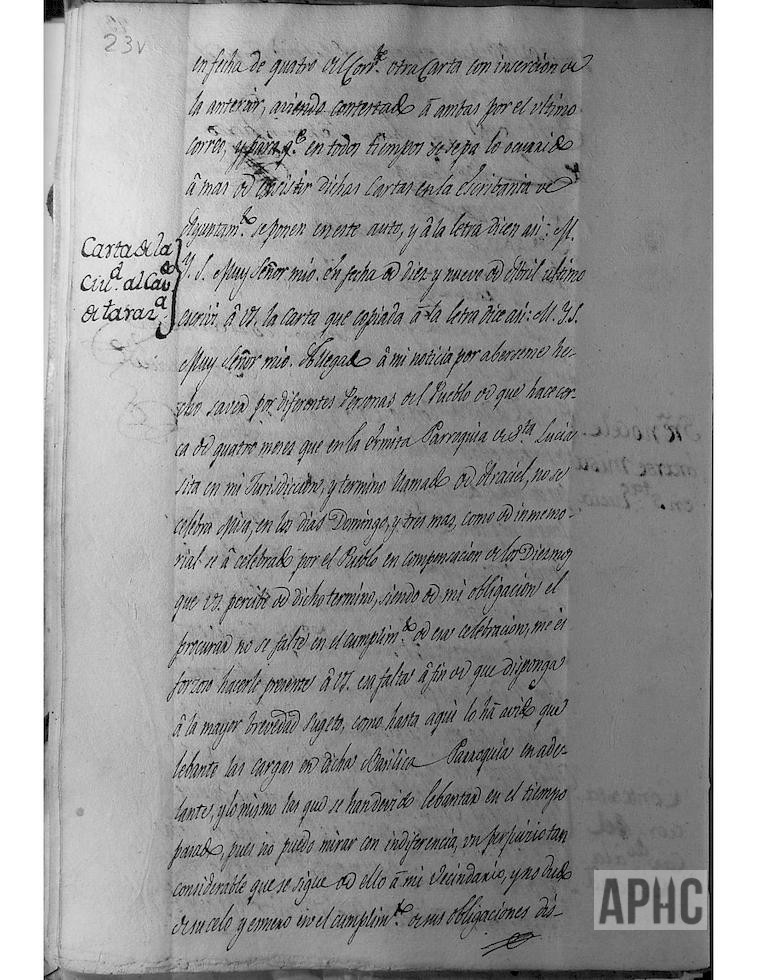 23v
en fecha de quatro del Corr.te otra Carta con insercion de
la anterior, aviendo contextado â ambas por el ultimo
correo, y para q.e en todos tiempos se sepa lo ocurrido
â mas de existir dichas Cartas en la Escribania de
Ayuntam.to se ponen en este auto, y â la letra dicen asi: M.
Carta de la
Ciu.d al Cav.do
de Taraz.a
Y. S. Muy Señor mio. En fecha de diez y nueve de Abril ultimo
escrivi â VS. la Carta que copiada â la letra dice asi: M. Y. S.
Muy Señor mio. Ha llegado â mi noticia por aberseme he-
cho saver por diferentes Personas del Pueblo de que hace cer-
ca de quatro meses que en la Ermita Parroquia de S.ta Lucia
sita en mi Jurisdiccion, y termino llamado de Araciel, no se
celebra Misa, en los dias Domingo, y tres mas, como de inmemo-
rial se â celebrado por el Pueblo en compensacion de los Diezmos
que VS. percibe de dicho termino, siendo de mi obligacion el
procurar no se falte en el cumplim.to de esa celebracion, me es
forzoso hacerle presente â VS. esa falta â fin de que disponga
â la mayor brevedad Sugeto, como hasta aqui lo hâ avido que
lebante las cargas en dicha Basilica Parroquia en ade-
lante, y lo mismo las que se han devido lebantar en el tiempo
pasado, pues no puedo mirar con indiferencia, un perjuicio tan
considerable que se sigue de ello â mi Vecindario, y no dudo
de su celo y esmero en el cumplim.to de sus obligaciones dis-
APHC